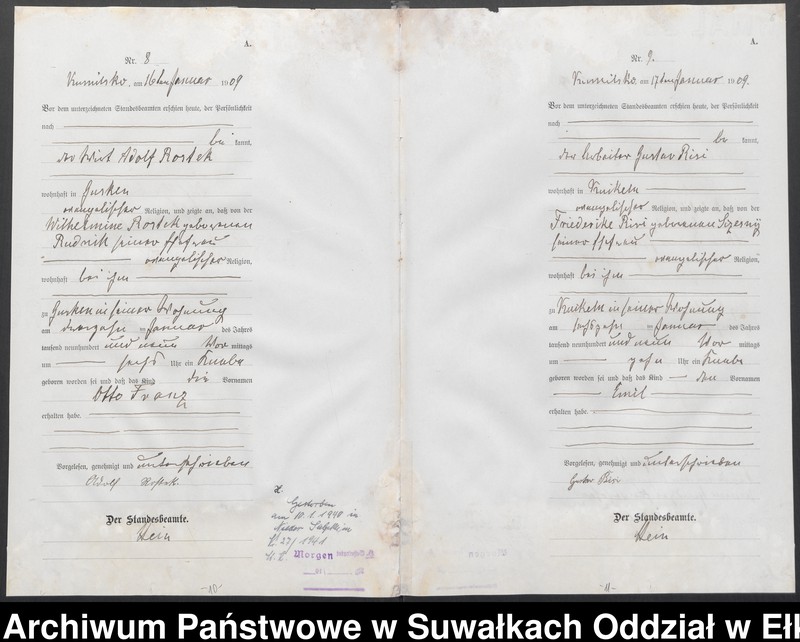 A.
Nr. 8
Kumilsko, am 16ten Januar 1909
Vor dem unterzeichneten Standesbeamten erschien heute, der Persönlichkeit
nach
be kannt,
der Wirt Adolf Rostek
wohnhaft in Gurken
evangelischer Religion, und zeigte an, daß von der
Wilhelmine Rostek geborenen
Rudnik seiner Ehefrau
evangelischer Religion,
wohnhaft bei ihm
zu Gurken in seiner Wohnung
am dreizehn ten Januar des Jahres
tausend neunhundert und neun Vor mittags
um sechs Uhr ein Knabe
geboren worden sei und daß das Kind die Vornamen
Otto Franz
erhalten habe.
Vorgelesen, genehmigt und unterschrieben
Adolf Rostek
Der Standesbeamte.
Hein
Gestorben
am 10.1.1940 in
27/1941
Morgen
-10-
A.
Nr. 9.
Kumilsko, am 17ten Januar 1909.
Vor dem unterzeichneten Standesbeamten erschien heute, der Persönlichkeit
nach
be kannt,
der Arbeiter Gustav Risi
wohnhaft in Kniketn
evangelischer Religion, und zeigte an, daß von der
Friederike Risi geborenen
seiner Ehefrau
evangelischer Religion,
wohnhaft bei ihm
zu Kniketn in seiner Wohnung
am sechszehn ten Januar des Jahres
tausend neunhundert und neun Vor mittags
um zehn Uhr ein Knabe
geboren worden sei und daß das Kind den Vornamen
Emil
erhalten habe.
Vorgelesen, genehmigt und unterschrieben
Gustav Risi
Der Standesbeamte.
Hein
-11-
Archiwum Państwowe w Suwałkach Oddział w Eł